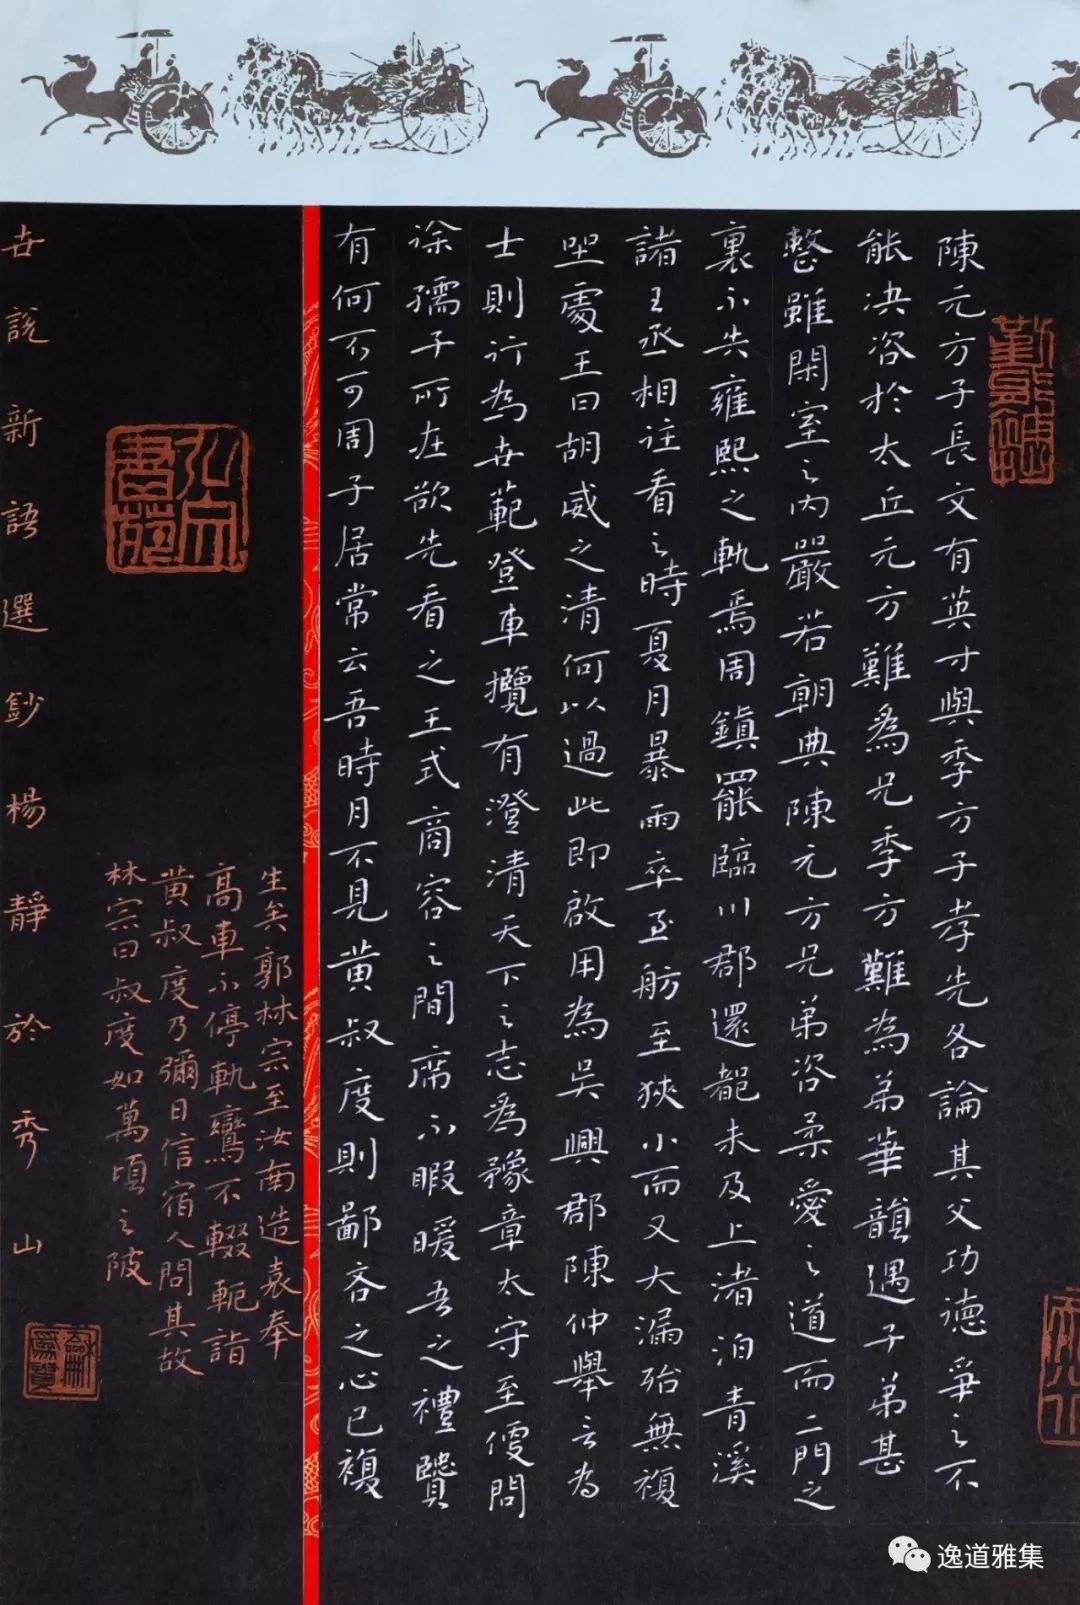 陳元方子長文有英才與季方子孝先各論其父功德爭之不
能决咨於太丘元方難為兄季方難為弟華歆遇子弟甚
整雖閑室之内嚴若朝典陳元方兄弟恣柔愛之道而二門之
裏不失雍熙之軌焉周鎮罷臨川郡還都未及上渚泊青溪
諸王丞相往看之時夏月暴雨卒至舫至狹小而又大漏殆無複
坐處王曰胡威之清何以過此即啟用為吴興郡陳仲舉言為
士則行為世範登車攬有澄清天下之志為豫章太守至便問
徐孺子所在欲先看之王式商容之閭席不暇暖吾之禮賢
有何不可周子居常云吾時月不見黄叔度則鄙吝之心已複
生矣郭林宗至汝南造袁奉
高車不停軌鸞不輟軛詣
黄叔度乃彌日信宿人問其故
林宗曰叔度如萬頃之陂
世說新語選鈔楊靜於秀山
弘宗書苑
逸道雅集